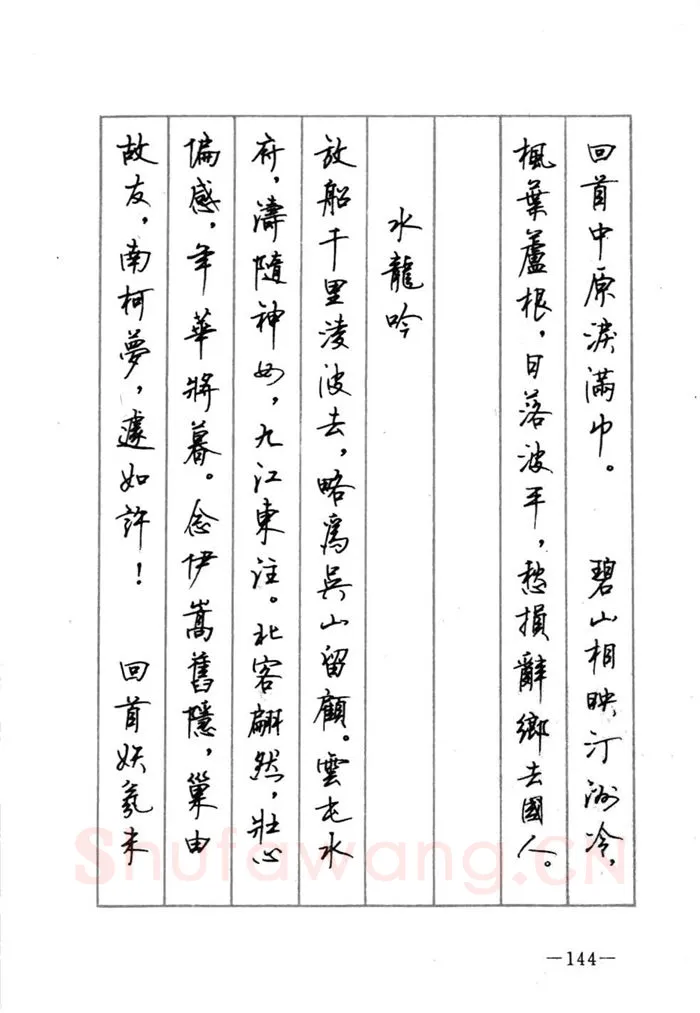 回首中原淚滿巾。 碧山相映汀洲冷，
楓葉蘆根，日落波平，愁損辭鄉去國人。
水龍吟
放船千里淩波去，略爲吳山留顧。雲屯水
府，濤隨神女，九江東注。北客翩然，壯心
偏感，年華將暮。念伊嵩舊隱，巢由
故友，南柯夢，遽如許！ 回首妖氛未
Shufawang.CN
—144—